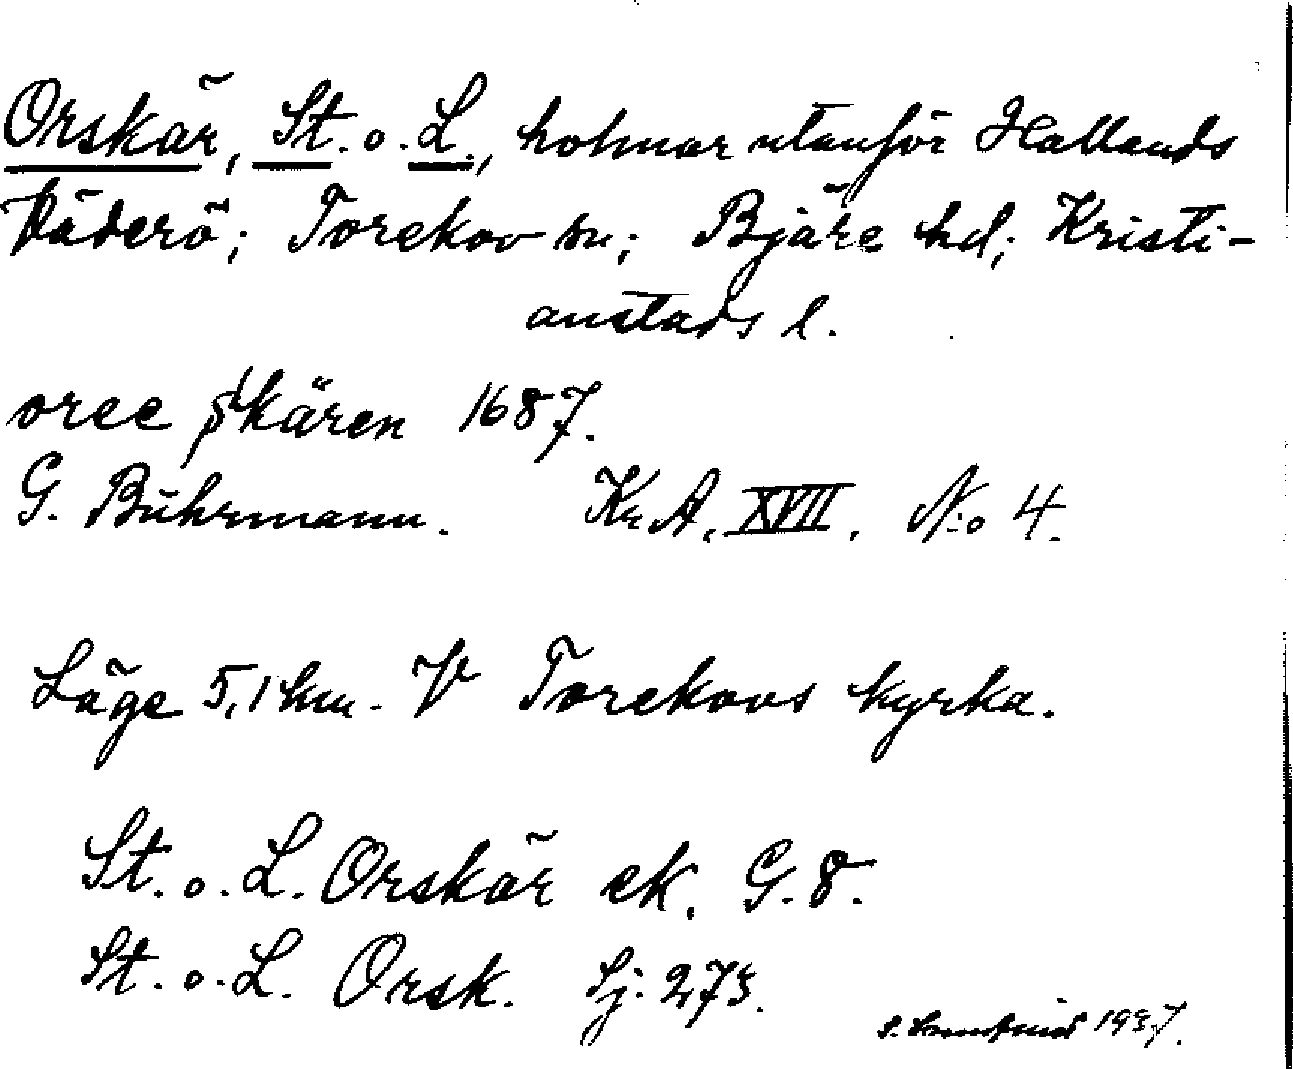 Orskär, St. o. L., holmar utanför Hallands
Väderö; Torekov sn; Bjäre hd; Kristi-
anstads l.
oree skären 1687.
G. Buhrmann. Kr. A. XVII. N:o 4.
Läge 5,1 km. V Torekovs kyrka.
St. o. L. Orskär ek. G. 8.
St. o. L. Orsk. Sj. 273.
1937.